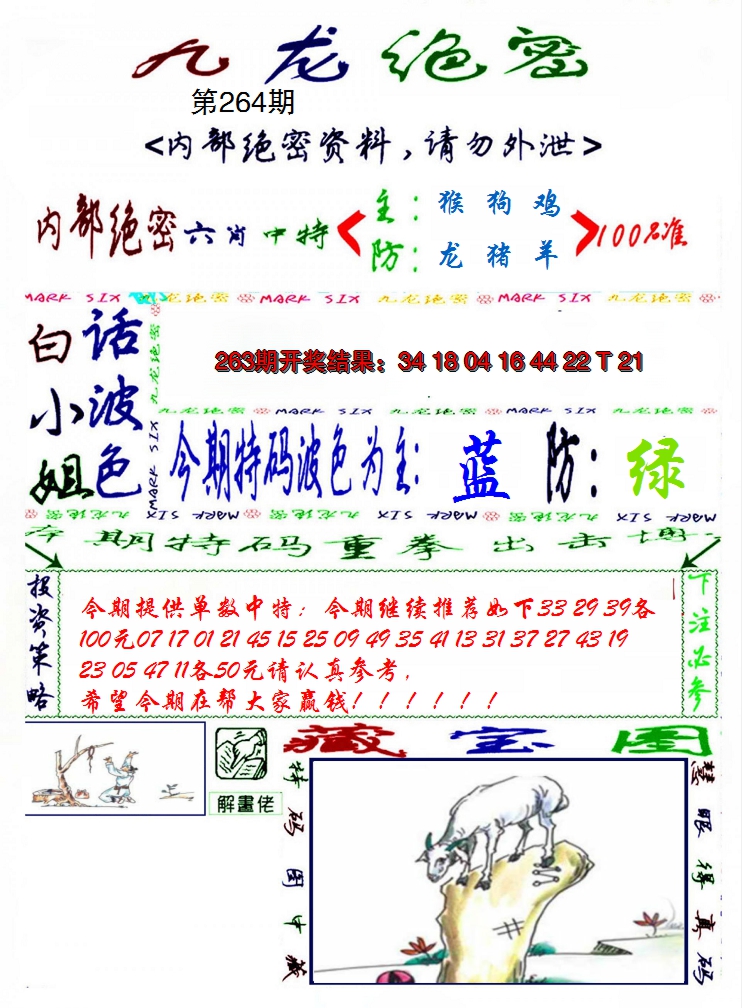 九龙绝密
第264期
<内部绝密资料，请勿外泄>
内部绝密六肖中特
主：猴 狗 鸡
防：龙 猪 羊
100%准
MARK SIX 九龙绝密 MARK SIX 九龙绝密 MARK SIX 九龙绝密
白小姐
话波色
九龙绝密
MARK SIX
263期开奖结果：34 18 04 16 44 22 T 21
九龙绝密 MARK SIX 九龙绝密 MARK SIX 九龙绝密
今期特码波色为主：蓝 防：绿
九龙绝密 MARK SIX 九龙绝密 MARK SIX 九龙绝密 MARK SIX
本期特码重拳出击
投资策略
今期提供单数中特；今期继续推荐如下33 29 39各
100元07 17 01 21 45 15 25 09 49 35 41 13 31 37 27 43 19
23 05 47 11各50元请认真参考，
希望今期在帮大家赢钱！！！！！！
下注必参
解畫佬
藏宝图
特码图中藏
慧眼得真码